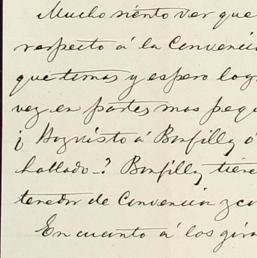 Mucho siento ver que
respecto á la Convenció
que temas y espero log
vez en partes mas peq
¡Has visto á Bonfilly ó
hallado-? Bonfilly tiene
tenedor de Convencion y co
En cuanto á los gira